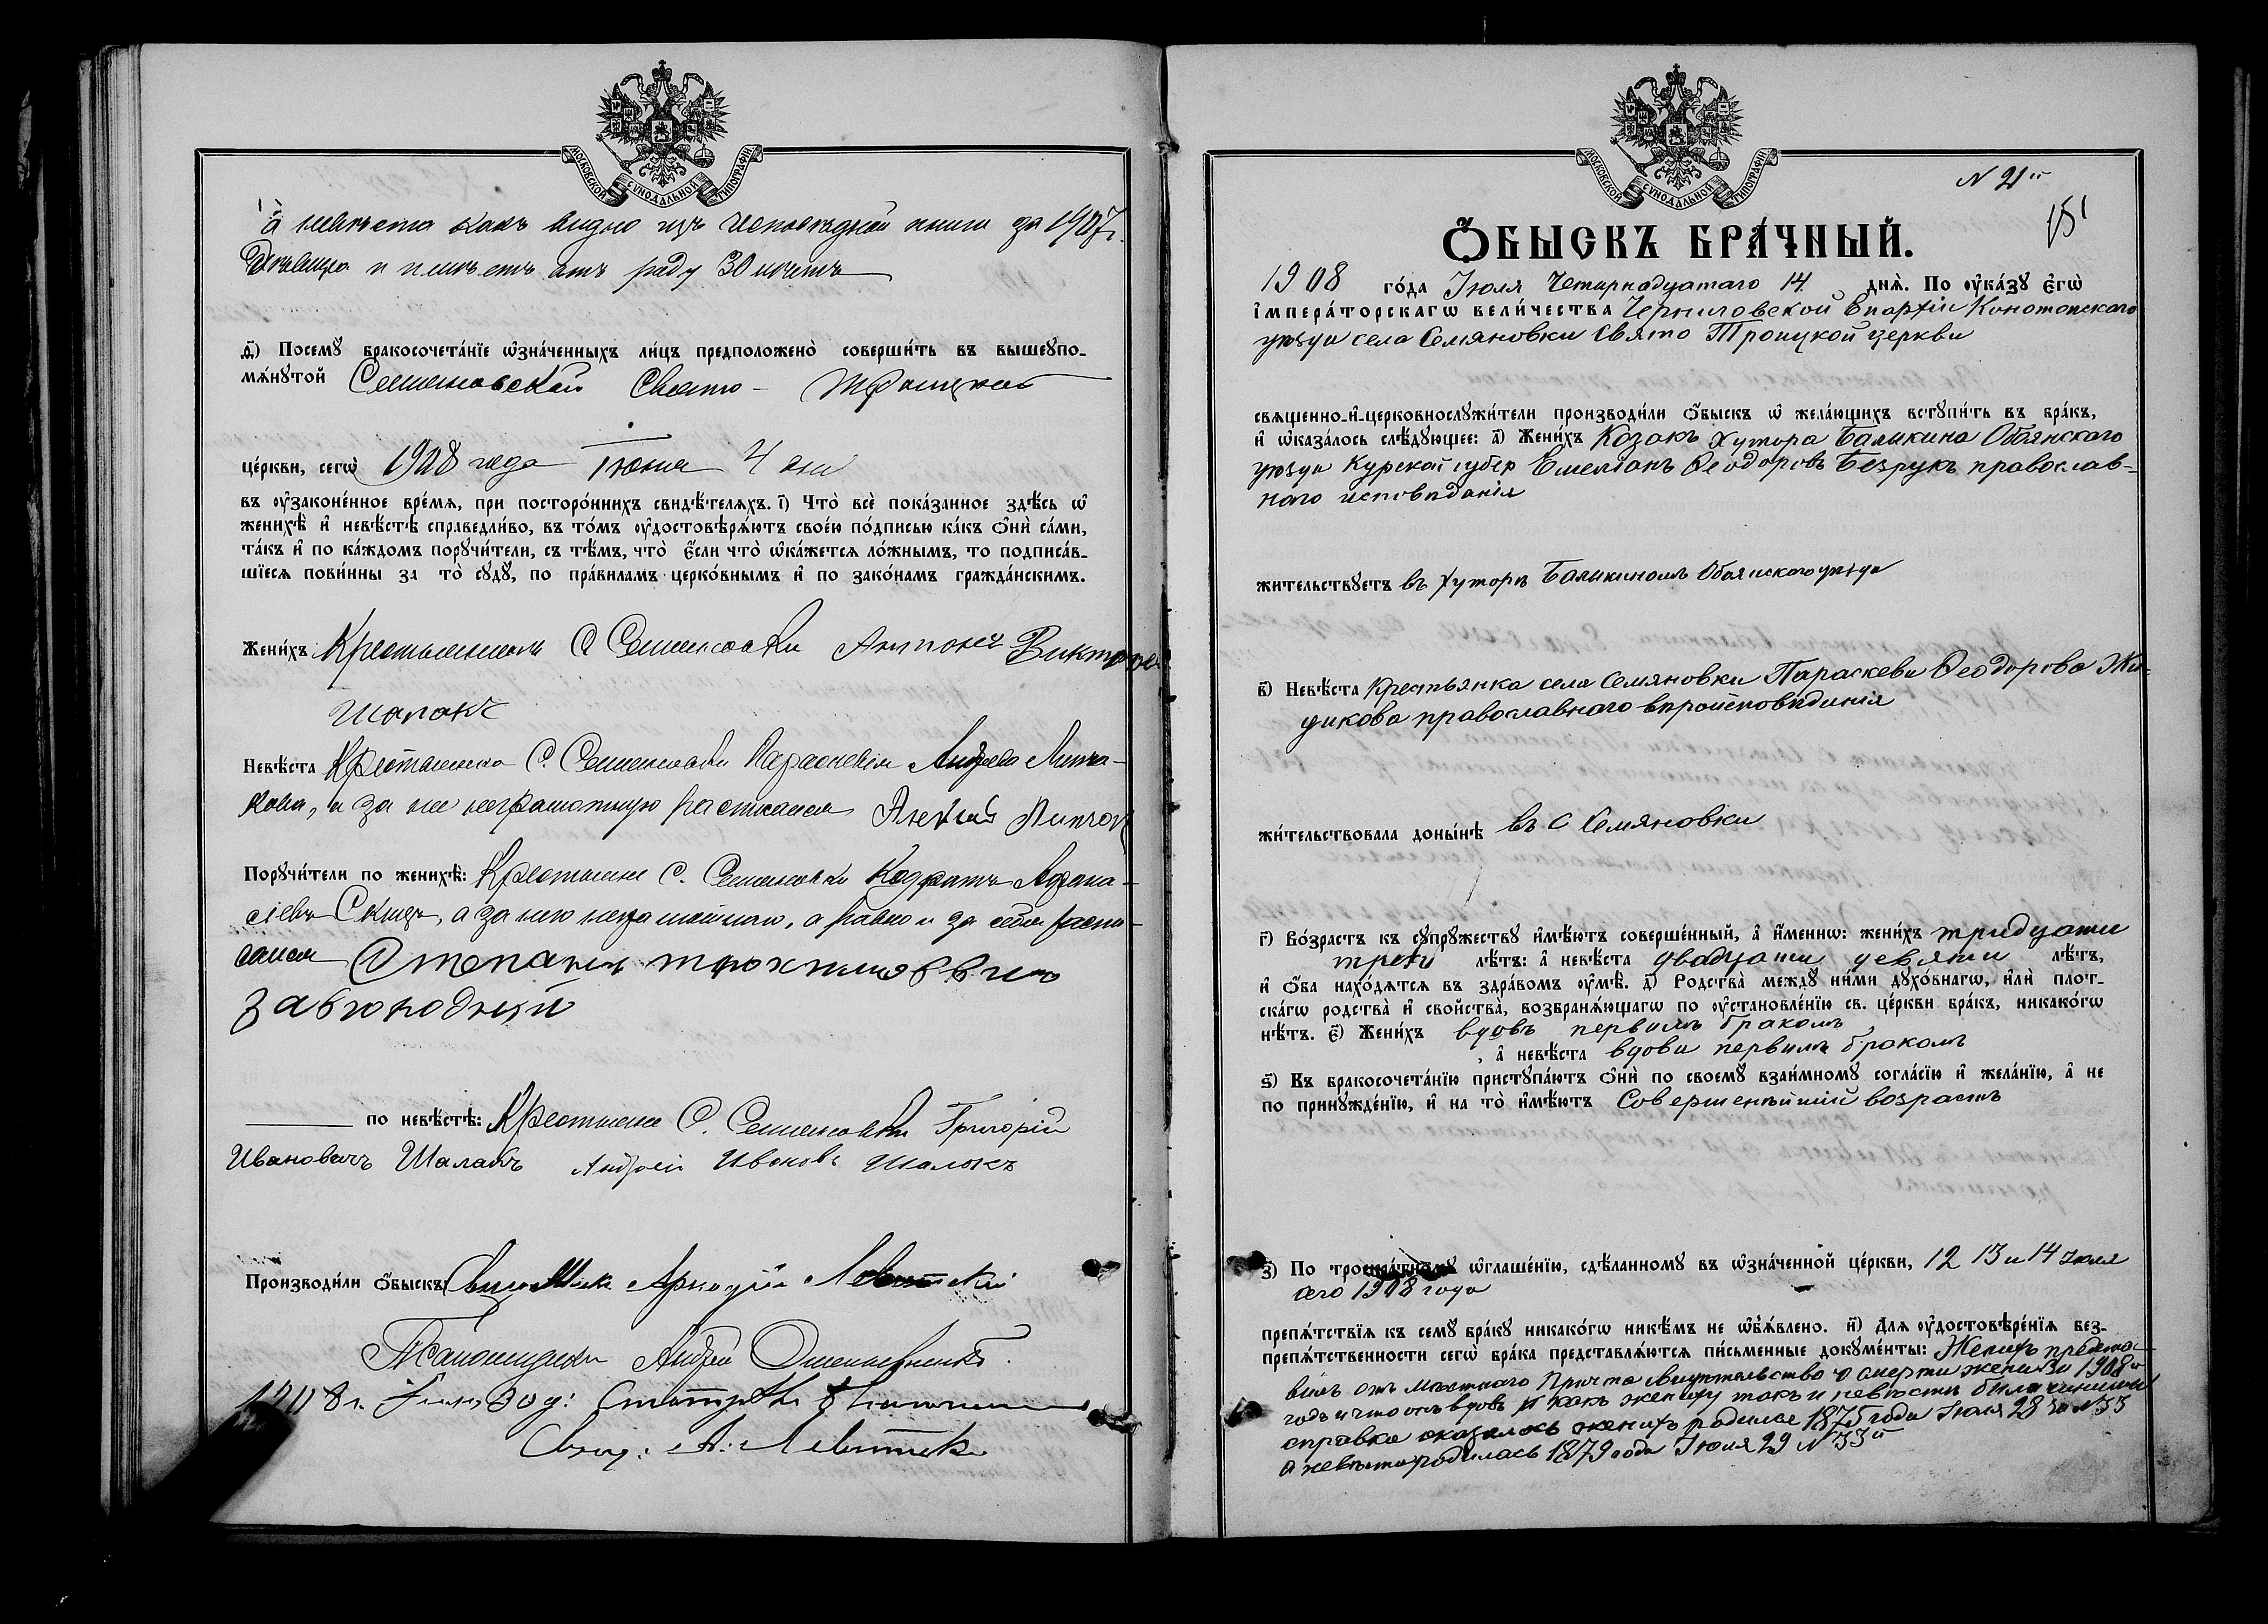 МОСКОВСКОЙ СѴНОДАЛЬНОЙ ТИПОГРАФІИ
а невѣста какъ видно изъ исповѣдной книги за 1907 г.
дѣвица и имѣетъ отъ роду 30 лѣтъ
ѳ҃) Посемꙋ̀ бракосочета́нїе ѡ҆зна́ченныхъ ли́цъ предположено̀ соверши́ть въ вышеꙋпо-
мѧ́нꙋтой Семяновской Свято-Троицкой
це́ркви, сегѡ̀ 1908 года Іюня 4 дня
въ ᲂу҆законе́нное вре́мѧ, при посторо́ннихъ свидѣ́телѧхъ. і҃) Что̀ всѐ пока́занное здѣ́сь ѡ҆
женихѣ̀ и҆ невѣ́стѣ справедли́во, въ то́мъ ᲂу҆достовѣрѧ́ютъ свое́ю по́дписью ка́къ ѻ҆нѝ са́ми,
та́къ и҆ по ка́ждомъ порꙋчи́тели, съ тѣ́мъ, что̀ є҆́сли что̀ ѡ҆ка́жетсѧ ло́жнымъ, то подписа́в-
шїесѧ пови́нны за то̀ сꙋдꙋ̀, по пра́виламъ церко́внымъ и҆ по зако́намъ гражда́нскимъ.
Жени́хъ Крестьянинъ С. Семяновки Антонъ Викторов
Шапакъ
Невѣ́ста Крестьянка С. Семяновки Параскевія Андреева
а за нее неграмотную росписался Алексѣй
Порꙋчи́тели по женихѣ̀: Крестьяне С. Семяновки Кодратъ Афана-
сіевъ а за него неграмотнаго, а равно и за себя роспи-
сался Степанъ
Забюродний
по невѣ́стѣ: Крестьяне С. Семяновки Григорій
Ивановичъ Шалакъ Андрей Ивановъ Шалакъ
Производи́ли ѻ҆́быскъ: Священникъ Аркадій Левитскій
Андрей
1908 г.
Свящ: А. Левитскій
МОСКОВСКОЙ СѴНОДАЛЬНОЙ ТИПОГРАФІИ
N 21й
151
Ѻ҆́БЫСКЪ БРА́ЧНЫЙ.
1908 го́да Іюля Четырнадцатаго 14 днѧ̀. По ᲂу҆ка́зꙋ є҆гѡ̀
і҆мпера́торскагѡ вели́чества Черниговской Епархіи Конотопскаго
уѣзда села Семяновки Свято Троицкой церкви
свѧщенно-и҆-церковнослꙋжи́тели производи́ли ѻ҆́быскъ ѡ҆ жела́ющихъ встꙋпи́ть въ бра́къ,
и҆ ѡ҆каза́лось слѣ́дꙋющее: а҃) Жени́хъ Козакъ Хутора Баликина Обоянскаго
уѣзда Курской губер Емелианъ Ѳеодоровъ Безрукъ православ-
наго исповѣданія
жительствꙋетъ въ хуторѣ Баликиномъ Обоянскаго уѣзда
в҃) Невѣ́ста Крестьянка села Семяновки Параскева Ѳеодорова Жи-
дикова православнаго вѣроисповѣданія
жи́тельствовала доны́нѣ въ С Семяновки
г҃) Во́зрастъ къ сꙋпрꙋ́жествꙋ и҆мѣ́ютъ соверше́нный, а҆ и҆́меннѡ: жени́хъ тридцати
трехъ лѣ́тъ: а҆ невѣ́ста двадцати девяти лѣ́тъ,
и҆ ѻ҆́ба нахо́дѧтсѧ въ здра́вомъ ᲂу҆мѣ̀. д҃) Родства̀ междꙋ̀ ни́ми дꙋхо́внагѡ, и҆лѝ плот-
ска́гѡ родства̀ и҆ сво́йства̀, возбранѧ́ющагѡ по ᲂу҆становле́нїю св. це́ркви бра́къ, никако́гѡ
нѣ́тъ. є҃) Жени́хъ вдовъ первымъ бракомъ
, а҆ невѣ́ста вдова первымъ бракомъ
ѕ҃) Къ бракосочета́нїю пристꙋпа́ютъ ѻ҆нѝ по своемꙋ̀ взаи́мномꙋ согла́сїю и҆ жела́нїю, а҆ не
по принꙋжде́нїю, и҆ на то̀ и҆мѣ́ютъ возрастъ
з҃) По троекра́тномꙋ ѡ҆глаше́нїю, сдѣ́ланномꙋ въ ѡ҆зна́ченной це́ркви, 12 13 и 14 Іюля
сего 1908 года
препѧ́тствїѧ къ семꙋ̀ бра́кꙋ никако́гѡ никѣ́мъ не ѡ҆б̾ѧ́влено. и҃) Длѧ ᲂу҆достовѣре́нїѧ без-
препѧ́тственности сегѡ̀ бра́ка представлѧ́ютсѧ пи́сьменные докꙋме́нты: Женихъ предста-
вилъ отъ мѣстнаго причта свидѣтельство о смерти жены за 1908й
годъ и что онъ вдовъ и какъ жениху такъ и невѣсти била чинима
справка оказалось женихъ родился 1875 года Іюля 28 за N 33
а невѣста родилась 1879 года Іюля 29 N 33й